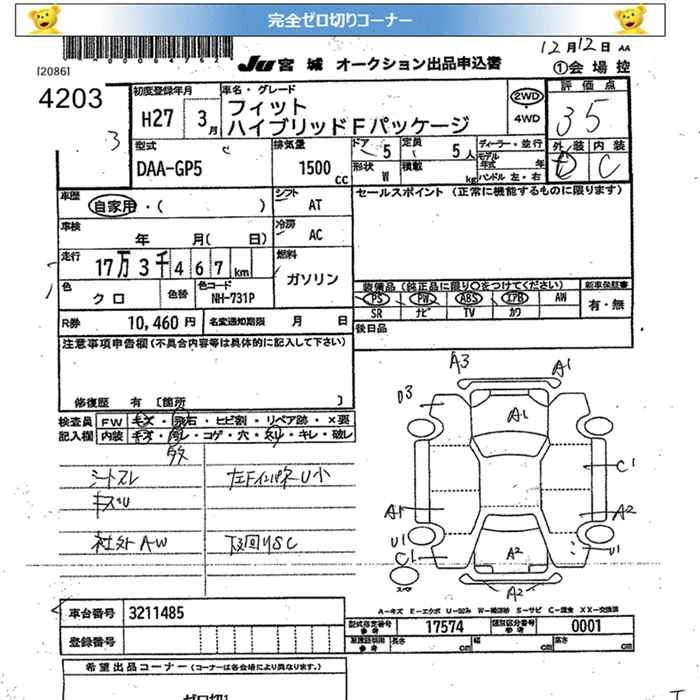 完全ゼロ切りコーナー
[2086]
JU 宮城 オークション出品申込書
12月12日 AA
①会場控
4203
初度登録年月
H27 3月
車名・グレード
フィット
ハイブリッドFパッケージ
2WD
4WD
評価点
35
3
型式
DAA-GP5
排気量
1500 cc
ドア 5
定員 5人
形状 W
積載 kg
ディーラー・並行
モデル年式 年
ハンドル 左・右
外装 内装
D C
車歴
自家用・( )
シフト
AT
セールスポイント (正常に機能するものに限ります)
車検
年 月( 日)
冷房
AC
走行
17万3千467km
燃料
ガソリン
色
クロ
色替
色コード
NH-731P
装備品 (純正品に限り○をつけてください)
新車保証書
PS PW ABS エアB AW
SR ナビ TV カワ
有・無
R券 10,460円
名変通知期限 月 日
後日品
注意事項申告欄(不具合内容等は具体的に記入して下さい)
修復歴 有 [箇所 ]
検査員記入欄
FW キズ・飛石・ヒビ割・リペア跡・×要
内装 キズ・汚レ・コゲ・穴・スレ・キレ・破レ
シートスレ
キズU
左FインパネU小
社外AW
下回りSC
A3
A1
D3
A1
C1
A1
A2
U1
C1
A2
U1
A2
スペア
A-キズ E-エクボ U-凹み W-補修跡 S-サビ C-腐食 XX-交換済
車台番号 3211485
型式指定番号 参考 17574
類別区分番号 参考 0001
登録番号
長さ cm 幅 cm 高さ cm
希望出品コーナー (コーナーは各会場により異なります。)
ゼロ切り